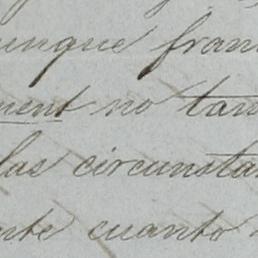 unque fran
ment no tan
las circunsta
nte cuanto